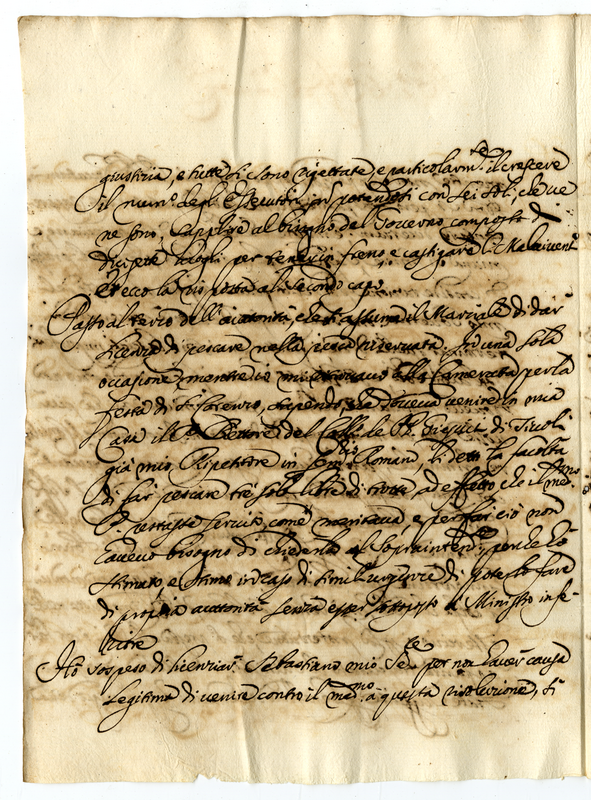 giustizia, e tutte si sono rigettate, e particolarm.te il crescere
il num.o degl'Esecutori, non potendosi con sei soli, che ve
ne sono, supplire al bisogno del Governo composto di
dieci sette luoghi per tenere in freno, e castigare li Malviventi
et ecco la risposta al secondo capo
Passo al terzo dell'autorità, che si assume il Marziale di dar
licenza di pescare nella pesca riservata. In una sola
occasione, mentre io mi ritrovavo alla Camerata per la
festa di S. Lorenzo, sapendo, che doveva venire in mia
Casa il P. Rettore del Coll.o de PP. Giesuiti di Tivoli
già mio Ripetitore in Sem.rio Romano li detti la facoltà
di far pescare tre sole libre di trotta ad effetto che il med.mo
restasse servito, come meritava e per far ciò non
havevo bisogno di chiederla al Sopraintend.te, perche hò
stimato, e stimo in caso di simili urgenze di poterlo fare
di propria autorità senza esser sottoposto a Ministro infe-
riore
Hò sospeso di licenziar Sebastiano mio Ser.re per non haver causa
legitima di venire contro il med.mo a questa risoluzione, si